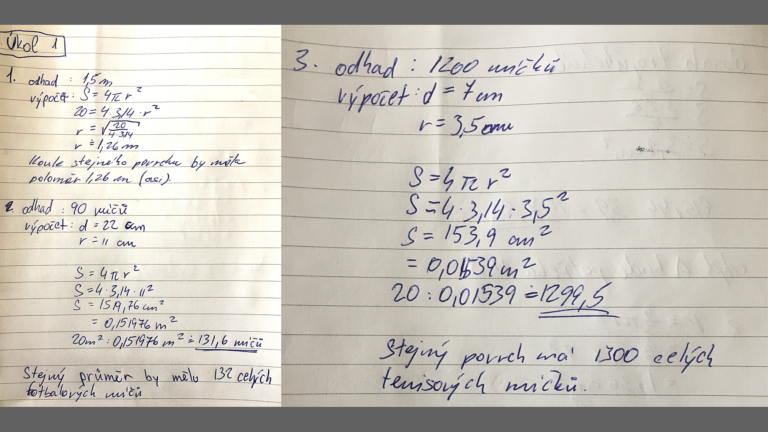 Úkol 1
1. odhad : 1,5 m
výpočet : S = 4πr²
20 = 4·3,14·r²
r = √20/4·3,14
r = 1,26 m
Koule stejného povrchu by měla
poloměr 1,26 m (asi).
2. odhad : 90 míčů
výpočet : d = 22 cm
r = 11 cm
S = 4πr²
S = 4·3,14·11²
S = 1519,76 cm²
= 0,151976 m²
20m² : 0,151976 m² ≐ 131,6 míčů
Stejný průměr by mělo 132 celých
fotbalových míčů
3. odhad : 1200 míčků
výpočet : d = 7 cm
r = 3,5 cm
S = 4πr²
S = 4·3,14·3,5²
S = 153,9 cm²
= 0,01539 m²
20 : 0,01539 ≐ 1299,5
Stejný povrch má 1300 celých
tenisových míčků.